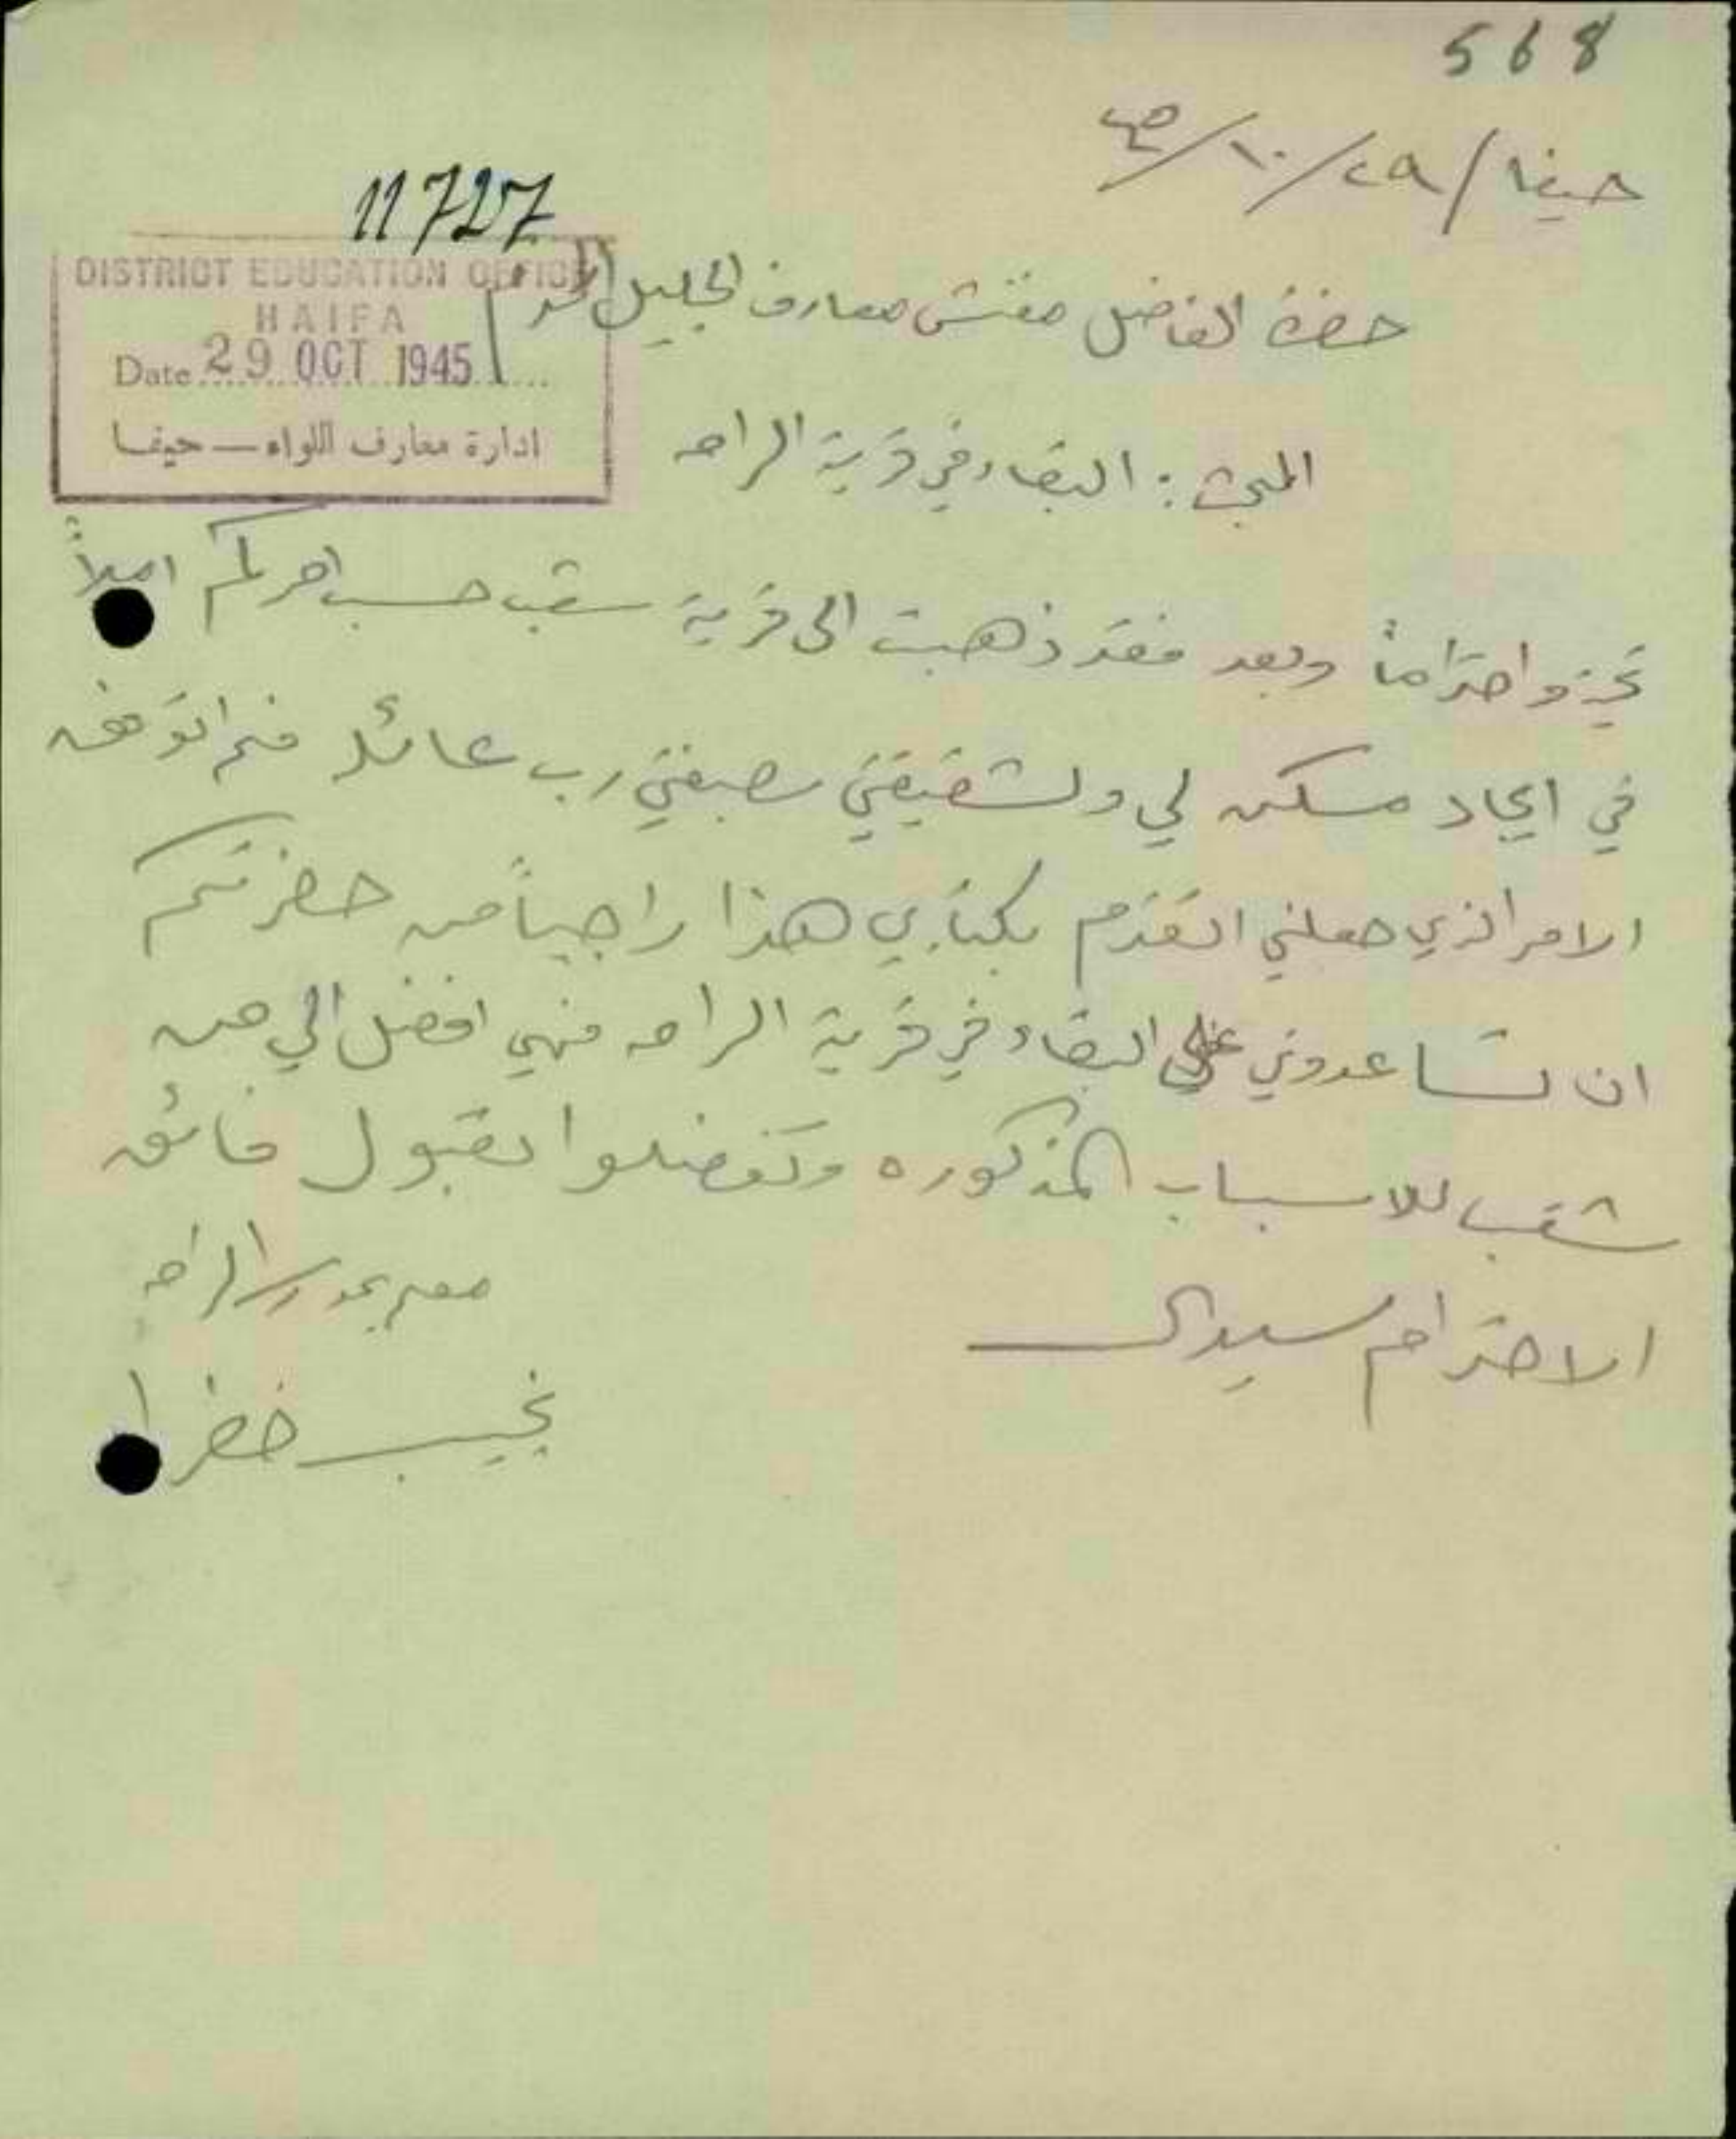 568
حيفا / ٢٩ / ١٠ / ٤٥
11727
DISTRICT EDUCATION OFFICE
HAIFA
Date 29 OCT 1945
ادارة معارف اللواء — حيفا
حضرة الفاضل مفتش معارف الجليل المحترم
المبحث : البقاء في قرية الرامه
تحية واحتراماً وبعد فقد ذهبت الى قرية شعب حسب امركم املاً
في ايجاد مسكن لي ولشقيقتي بصفتي رب عائلة فلم اتوفق
الامر الذي جعلني اتقدم بكتابي هذا راجياً من حضرتكم
ان تساعدوني على البقاء في قرية الرامه فهي افضل الي من
شعب للاسباب المذكوره وتفضلوا بقبول فائق
الاحترام سيدي
معلم بمدرسة الرامه
نجيب خضرا